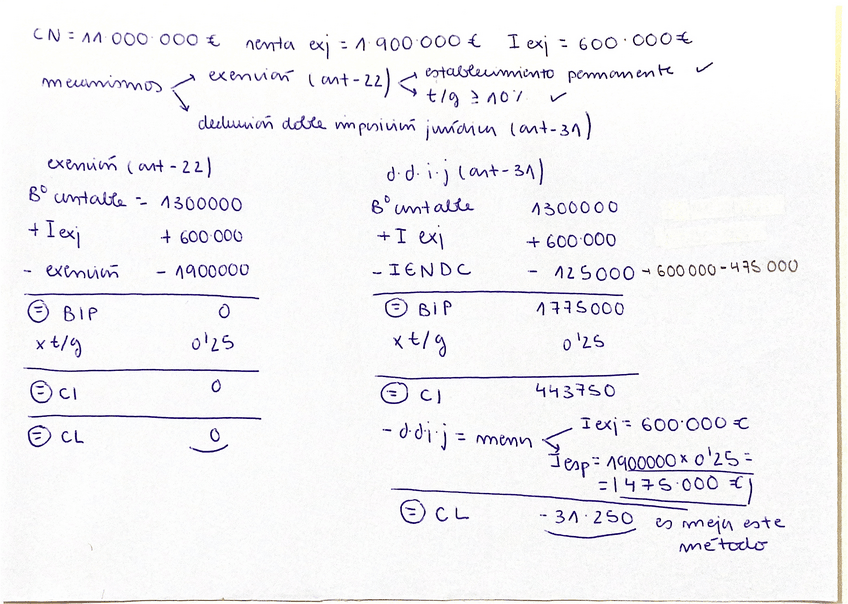 CN = 11.000.000 € renta exj = 1.900.000 € I exj = 600.000 €
mecanismos exención (art-22) establecimiento permanente ✓
t/g ≥ 10% ✓
deducción doble imposición jurídica (art-31)
exención (art-22)
Bº contable = 1300000
+ I exj + 600.000
- exención - 1900000
= BIP 0
x t/g 0'25
= CI 0
= CL 0
d.d.i.j (art-31)
Bº contable 1300000
+ I exj + 600.000
- IENDC - 125000 → 600000 - 475000
= BIP 1775000
x t/g 0'25
= CI 443750
- d.d.i.j = menor I exj = 600.000 €
I esp = 1900000 x 0'25 =
= 475.000 €
= CL - 31.250 es mejor este
método